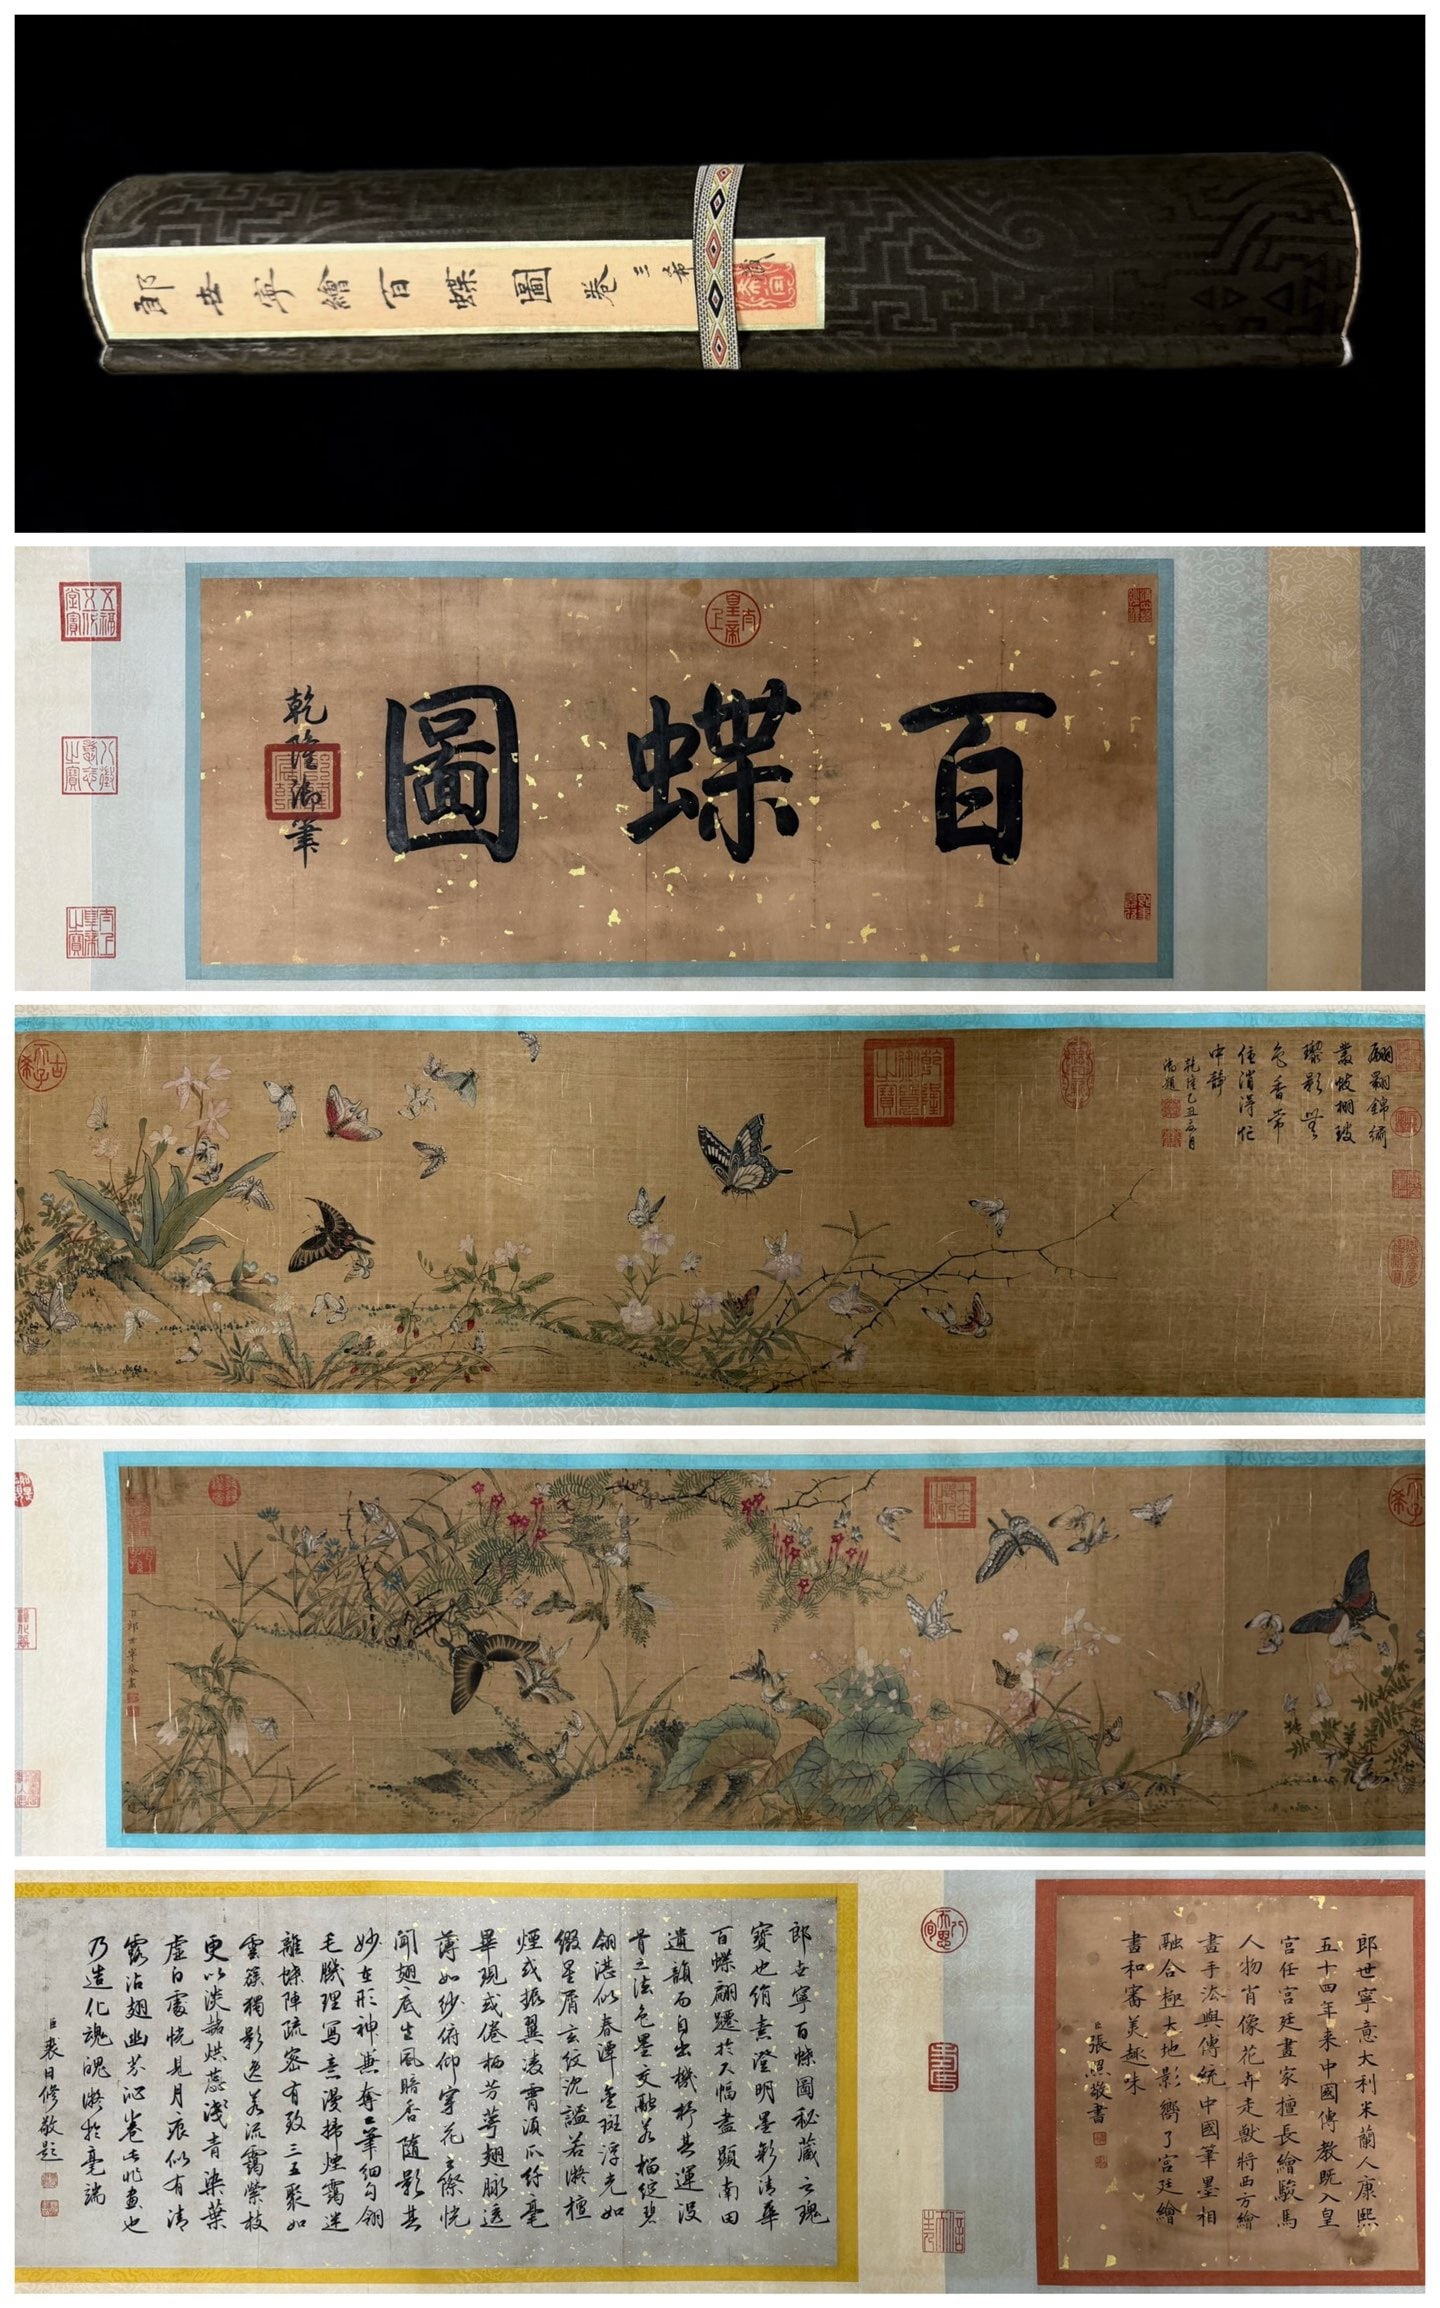 郎世寧繪百蝶圖卷 三希
百蝶圖
乾隆御筆
太上皇帝
五福五代堂寶
八徵耄念之寶
太上皇帝之寶
翩翻錦繡
叢蛺栩玻
瓈影無
色香常
住消得忙
中靜
乾隆乙丑
御題
乾隆御覽之寶
古希天子
十全
臣郎世寧恭畫
郎世寧意大利米蘭人康熙
五十四年来中國傳教既入皇
宮任宮廷畫家擅長繪駿馬
人物肖像花卉走獸將西方繪
畫手法與傳統中國筆墨相
融合極大地影嚮了宮廷繪
畫和審美趣味
臣張照敬書
郎世寧百蝶圖秘藏之瑰
寶也絹素澄明墨彩清華
百蝶翩躚於尺幅盡顯南田
遺韻而自出機杼其運没
骨之法色墨交融若榴綻碧
翎湛似春潭金斑浮光如
綴星屑玄紋沉謐若凝檀
煙或振翼凌霄須爪纤毫
畢現或倦栖芳萼翅脉透
薄如紗俯仰穿花之際恍
聞翅底生風暗香隨影其
妙在形神兼奪工筆細勾翎
毛腠理寫意漫掃煙靄迷
離蝶陣疏密有致三五聚如
雲簇獨影逸若流靄縈枝
更以淡赭烘蕊淺青染葉
虛白處恍見月痕似有清
露沾翅幽芬沁卷此非畫也
乃造化魂魄凝於毫端
臣裘日修敬題